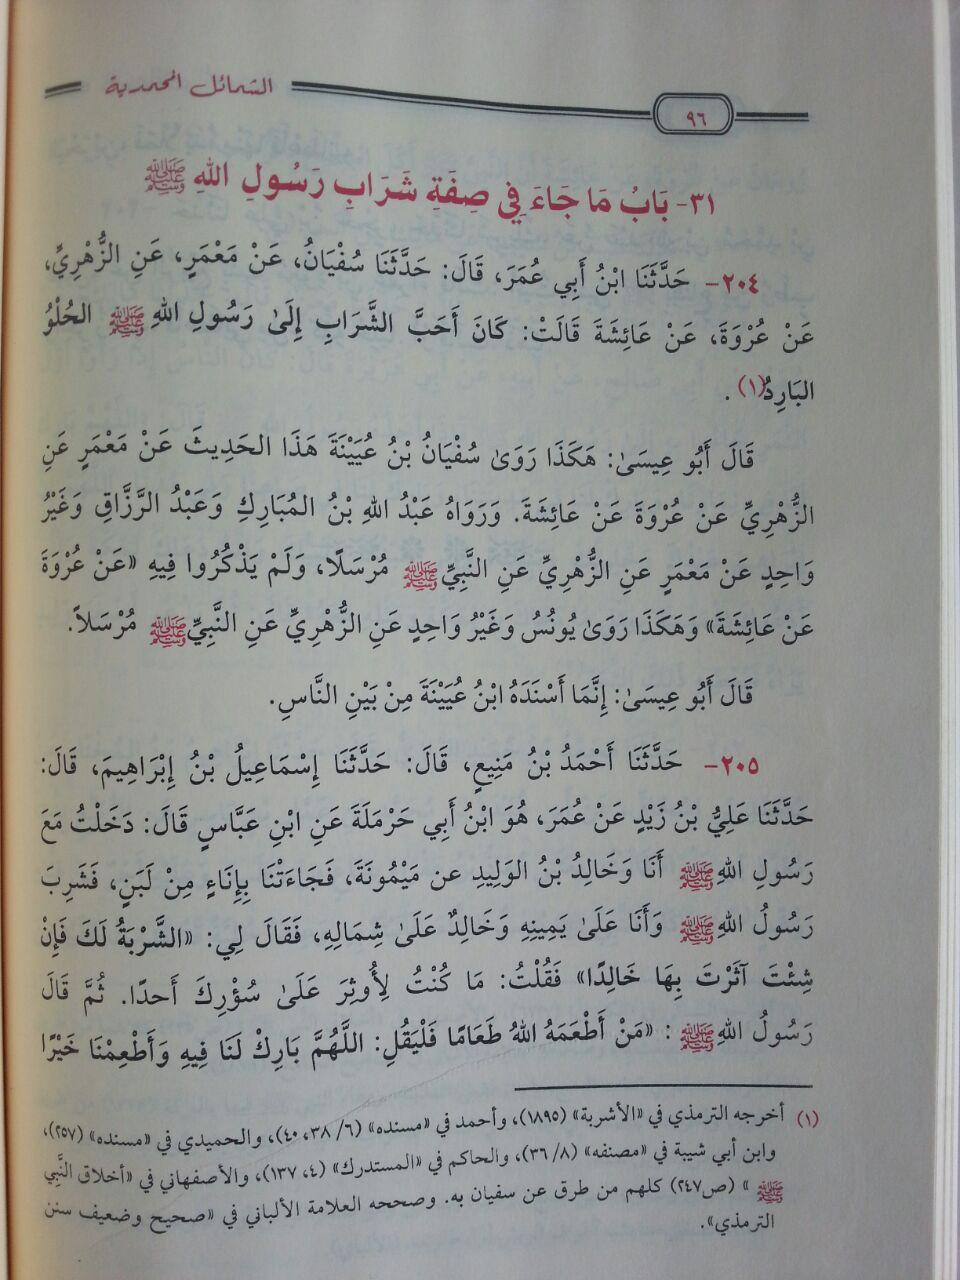 الشمائل المحمدية
٩٦
٣١- بَابُ مَا جَاءَ فِي صِفَةِ شَرَابِ رَسُولِ اللهِ ﷺ
٢٠٤- حَدَّثَنَا ابْنُ أَبِي عُمَرَ، قَالَ: حَدَّثَنَا سُفْيَانُ، عَنْ مَعْمَرٍ، عَنِ الزُّهْرِيِّ،
عَنْ عُرْوَةَ، عَنْ عَائِشَةَ قَالَتْ: كَانَ أَحَبَّ الشَّرَابِ إِلَىٰ رَسُولِ اللهِ ﷺ الحُلْوُ
البَارِدُ(١) .
قَالَ أَبُو عِيسَىٰ: هَكَذَا رَوَىٰ سُفْيَانُ بْنُ عُيَيْنَةَ هَذَا الحَدِيثَ عَنْ مَعْمَرٍ عَنِ
الزُّهْرِيِّ عَنْ عُرْوَةَ عَنْ عَائِشَةَ. وَرَوَاهُ عَبْدُ اللهِ بْنُ المُبَارِكِ وَعَبْدُ الرَّزَّاقِ وَغَيْرُ
وَاحِدٍ عَنْ مَعْمَرٍ عَنِ الزُّهْرِيِّ عَنِ النَّبِيِّ ﷺ مُرْسَلًا، وَلَمْ يَذْكُرُوا فِيهِ «عَنْ عُرْوَةَ
عَنْ عَائِشَةَ» وَهَكَذَا رَوَىٰ يُونُسُ وَغَيْرُ وَاحِدٍ عَنِ الزُّهْرِيِّ عَنِ النَّبِيِّ ﷺ مُرْسَلاً.
قَالَ أَبُو عِيسَىٰ: إِنَّمَا أَسْنَدَهُ ابْنُ عُيَيْنَةَ مِنْ بَيْنِ النَّاسِ.
٢٠٥- حَدَّثَنَا أَحْمَدُ بْنُ مَنِيعٍ، قَالَ: حَدَّثَنَا إِسْمَاعِيلُ بْنُ إِبْرَاهِيمَ، قَالَ:
حَدَّثَنَا عَلِيُّ بْنُ زَيْدٍ عَنْ عُمَرَ، هُوَ ابْنُ أَبِي حَرْمَلَةَ عَنِ ابْنِ عَبَّاسٍ قَالَ: دَخَلْتُ مَعَ
رَسُولِ اللهِ ﷺ أَنَا وَخَالِدُ بْنُ الوَلِيدِ عن مَيْمُونَةَ، فَجَاءَتْنَا بِإِنَاءٍ مِنْ لَبَنٍ، فَشَرِبَ
رَسُولُ اللهِ ﷺ وَأَنَا عَلَىٰ يَمِينِهِ وَخَالِدٌ عَلَىٰ شِمَالِهِ، فَقَالَ لِي: «الشَّرْبَةُ لَكَ فَإِنْ
شِئْتَ آثَرْتَ بِهَا خَالِدًا» فَقُلْتُ: مَا كُنْتُ لِأُوثِرَ عَلَىٰ سُؤْرِكَ أَحدًا. ثُمَّ قَالَ
رَسُولُ اللهِ ﷺ : «مَنْ أَطْعَمَهُ اللهُ طَعَامًا فَلْيَقُلِ: اللَّهُمَّ بَارِكْ لَنَا فِيهِ وَأَطْعِمْنَا خَيْرًا
(١) أخرجه الترمذي في «الأشربة» (١٨٩٥)، وأحمد في «مسنده» (٦/ ٣٨، ٤٠)، والحميدي في «مسنده» (٢٥٧)،
وابن أبي شيبة في «مصنفه» (٨/ ٣٦)، والحاكم في «المستدرك» (٤، ١٣٧)، والأصفهاني في «أخلاق النَّبي
ﷺ » (ص٢٤٧) كلهم من طرق عن سفيان به. وصححه العلامة الألباني في «صحيح وضعيف سنن
الترمذي».